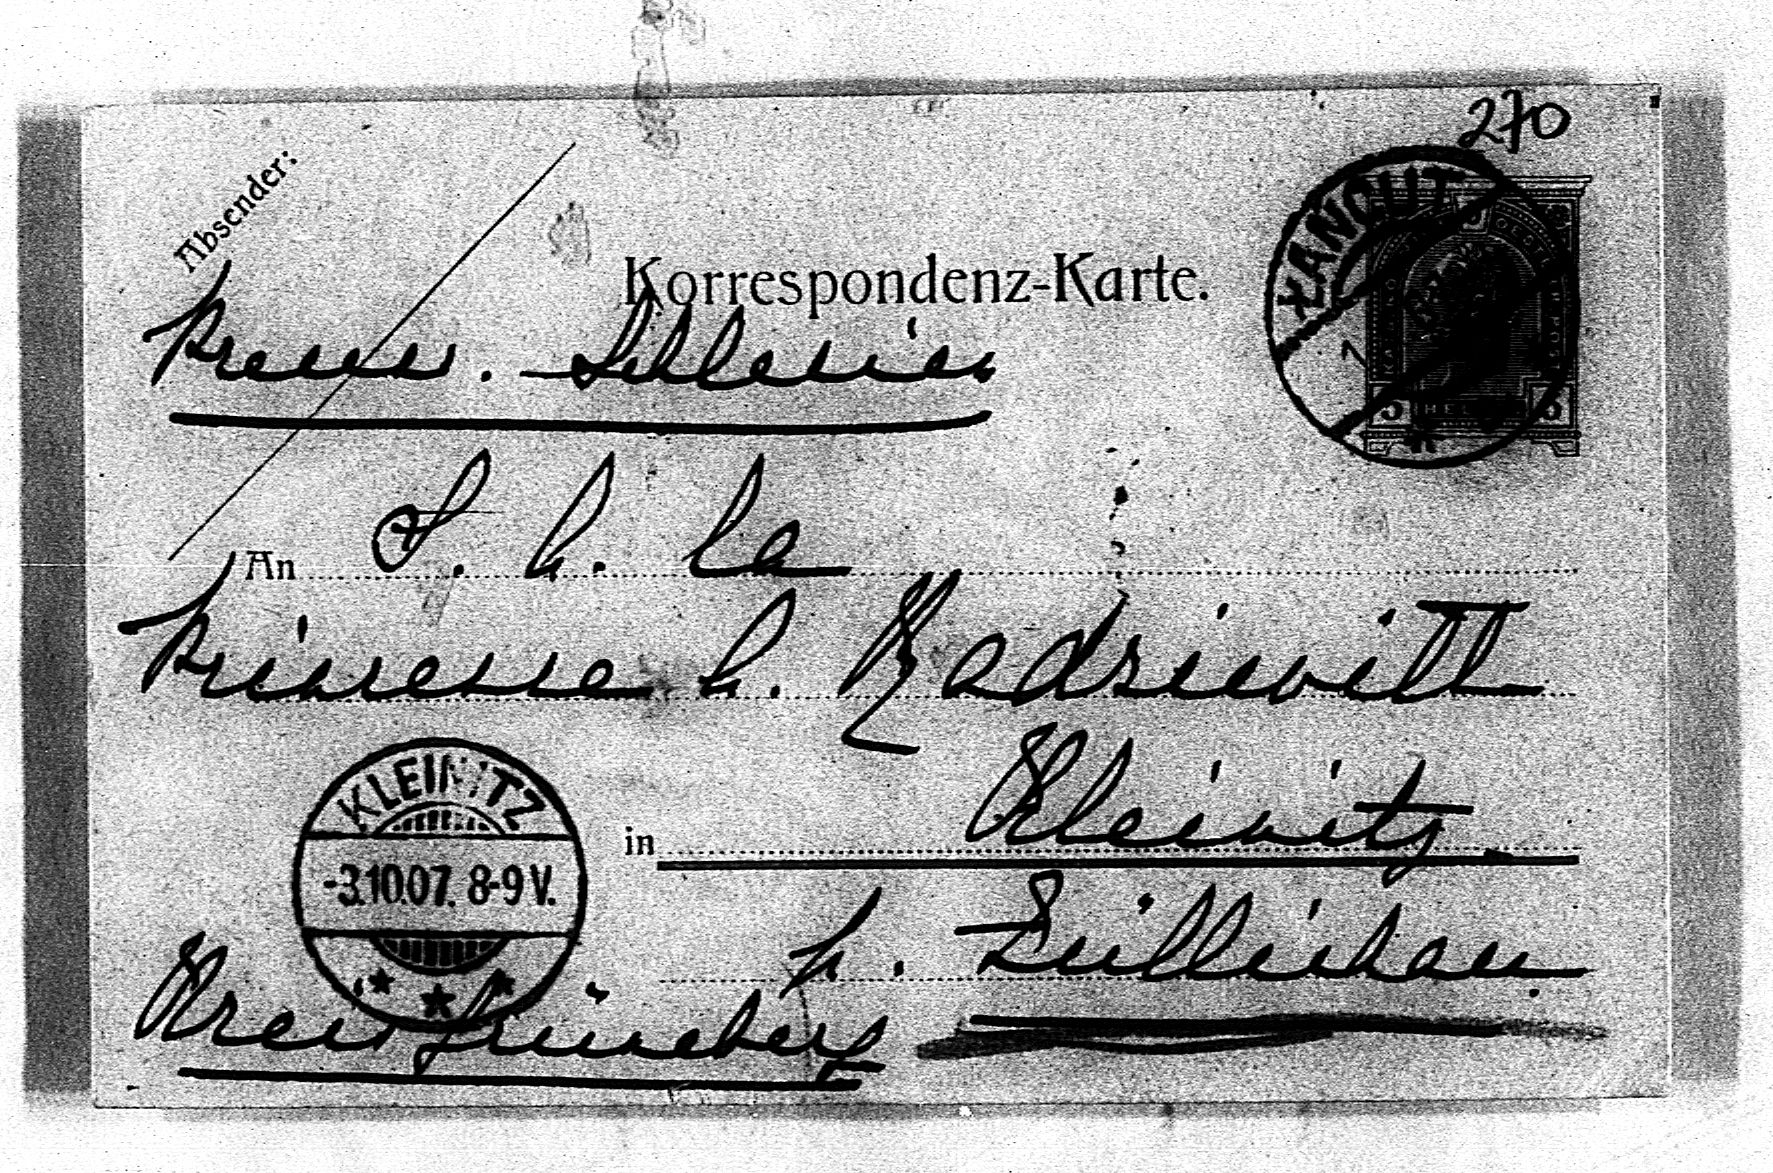 270
Absender:
Korrespondenz-Karte.
ŁAŃCUT
5 HELLER 5
Preuss. Schlesien
An S. A. la
Princesse A. Radziwill
in Kleinitz
KLEINITZ
-3.10.07. 8-9 V.
b. Züllichau
Kreis Grüneberg